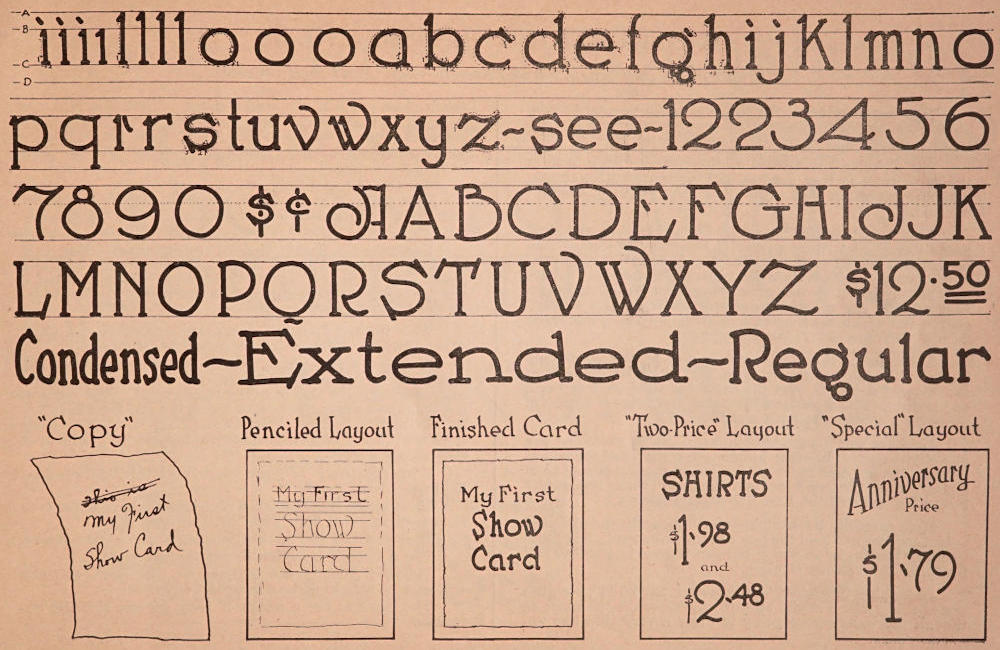 A
B
C
D
iiiillllooooabcdefghijklmno
pqrrstuvwxyz~see~1223456
7890 $ ¢ AABCDEFGHIJJK
LMNOPQRSTUVWXYZ $12.50
Condensed~Extended~Regular
"Copy"
This is
My First
Show Card
Penciled Layout
My First
Show
Card
Finished Card
My First
Show
Card
"Two-Price" Layout
SHIRTS
$1.98
and
$2.48
"Special" Layout
Anniversary
Price
$1.79